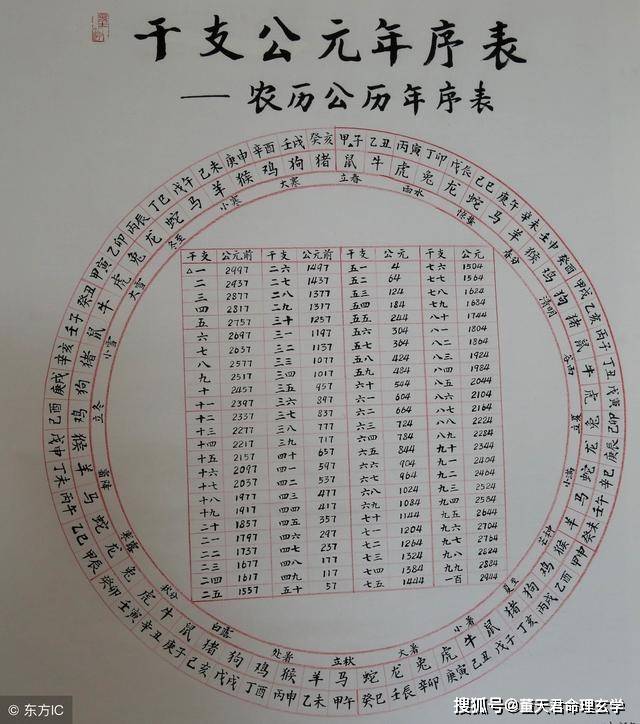 干支公元年序表
——农历公历年序表
甲子 乙丑 丙寅 丁卯 戊辰 己巳 庚午 辛未 壬申 癸酉 甲戌 乙亥 丙子 丁丑 戊寅 己卯 庚辰 辛巳 壬午 癸未 甲申 乙酉 丙戌 丁亥 戊子 己丑 庚寅 辛卯 壬辰 癸巳 甲午 乙未 丙申 丁酉 戊戌 己亥 庚子 辛丑 壬寅 癸卯 甲辰 乙巳 丙午 丁未 戊申 己酉 庚戌 辛亥 壬子 癸丑 甲寅 乙卯 丙辰 丁巳 戊午 己未 庚申 辛酉 壬戌 癸亥
鼠 牛 虎 兔 龙 蛇 马 羊 猴 鸡 狗 猪 鼠 牛 虎 兔 龙 蛇 马 羊 猴 鸡 狗 猪 鼠 牛 虎 兔 龙 蛇 马 羊 猴 鸡 狗 猪 鼠 牛 虎 兔 龙 蛇 马 羊 猴 鸡 狗 猪 鼠 牛 虎 兔 龙 蛇 马 羊 猴 鸡 狗 猪
立春 雨水 惊蛰 春分 清明 谷雨 立夏 小满 芒种 夏至 小暑 大暑 立秋 处暑 白露 秋分 寒露 霜降 立冬 小雪 大雪 冬至 小寒 大寒
干支 公元前 干支 公元前 干支 公元 干支 公元
△一 2997 二六 1497 五一 4 七六 1504
二 2937 二七 1437 五二 64 七七 1564
三 2877 二八 1377 五三 124 七八 1624
四 2817 二九 1317 五四 184 七九 1684
五 2757 三十 1257 五五 244 八十 1744
六 2697 三一 1197 五六 304 八一 1804
七 2637 三二 1137 五七 364 八二 1864
八 2577 三三 1077 五八 424 八三 1924
九 2517 三四 1017 五九 484 八四 1984
十 2457 三五 957 六十 544 八五 2044
十一 2397 三六 897 六一 604 八六 2104
十二 2337 三七 837 六二 664 八七 2164
十三 2277 三八 777 六三 724 八八 2224
十四 2217 三九 717 六四 784 八九 2284
十五 2157 四十 657 六五 844 九十 2344
十六 2097 四一 597 六六 904 九一 2404
十七 2037 四二 537 六七 964 九二 2464
十八 1977 四三 477 六八 1024 九三 2524
十九 1917 四四 417 六九 1084 九四 2584
二十 1857 四五 357 七十 1144 九五 2644
二一 1797 四六 297 七一 1204 九六 2704
二二 1737 四七 237 七二 1264 九七 2764
二三 1677 四八 177 七三 1324 九八 2824
二四 1617 四九 117 七四 1384 九九 2884
二五 1557 五十 57 七五 1444 一百 2944
东方IC
搜狐号@董天君命理玄学